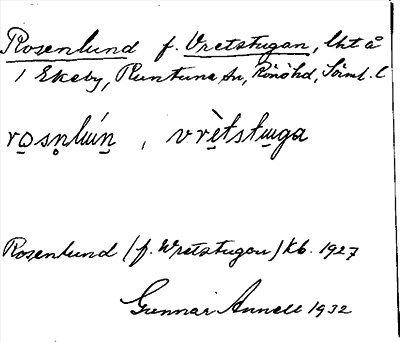 Rosenlund f. Vretstugan, lht å
1 Ekeby, Runtuna sn, Rönö hd, Söml. l
rosnluń, vrètstuga
Rosenlund (f. Wretstugan) Kb. 1927
Gunnar Annell 1932